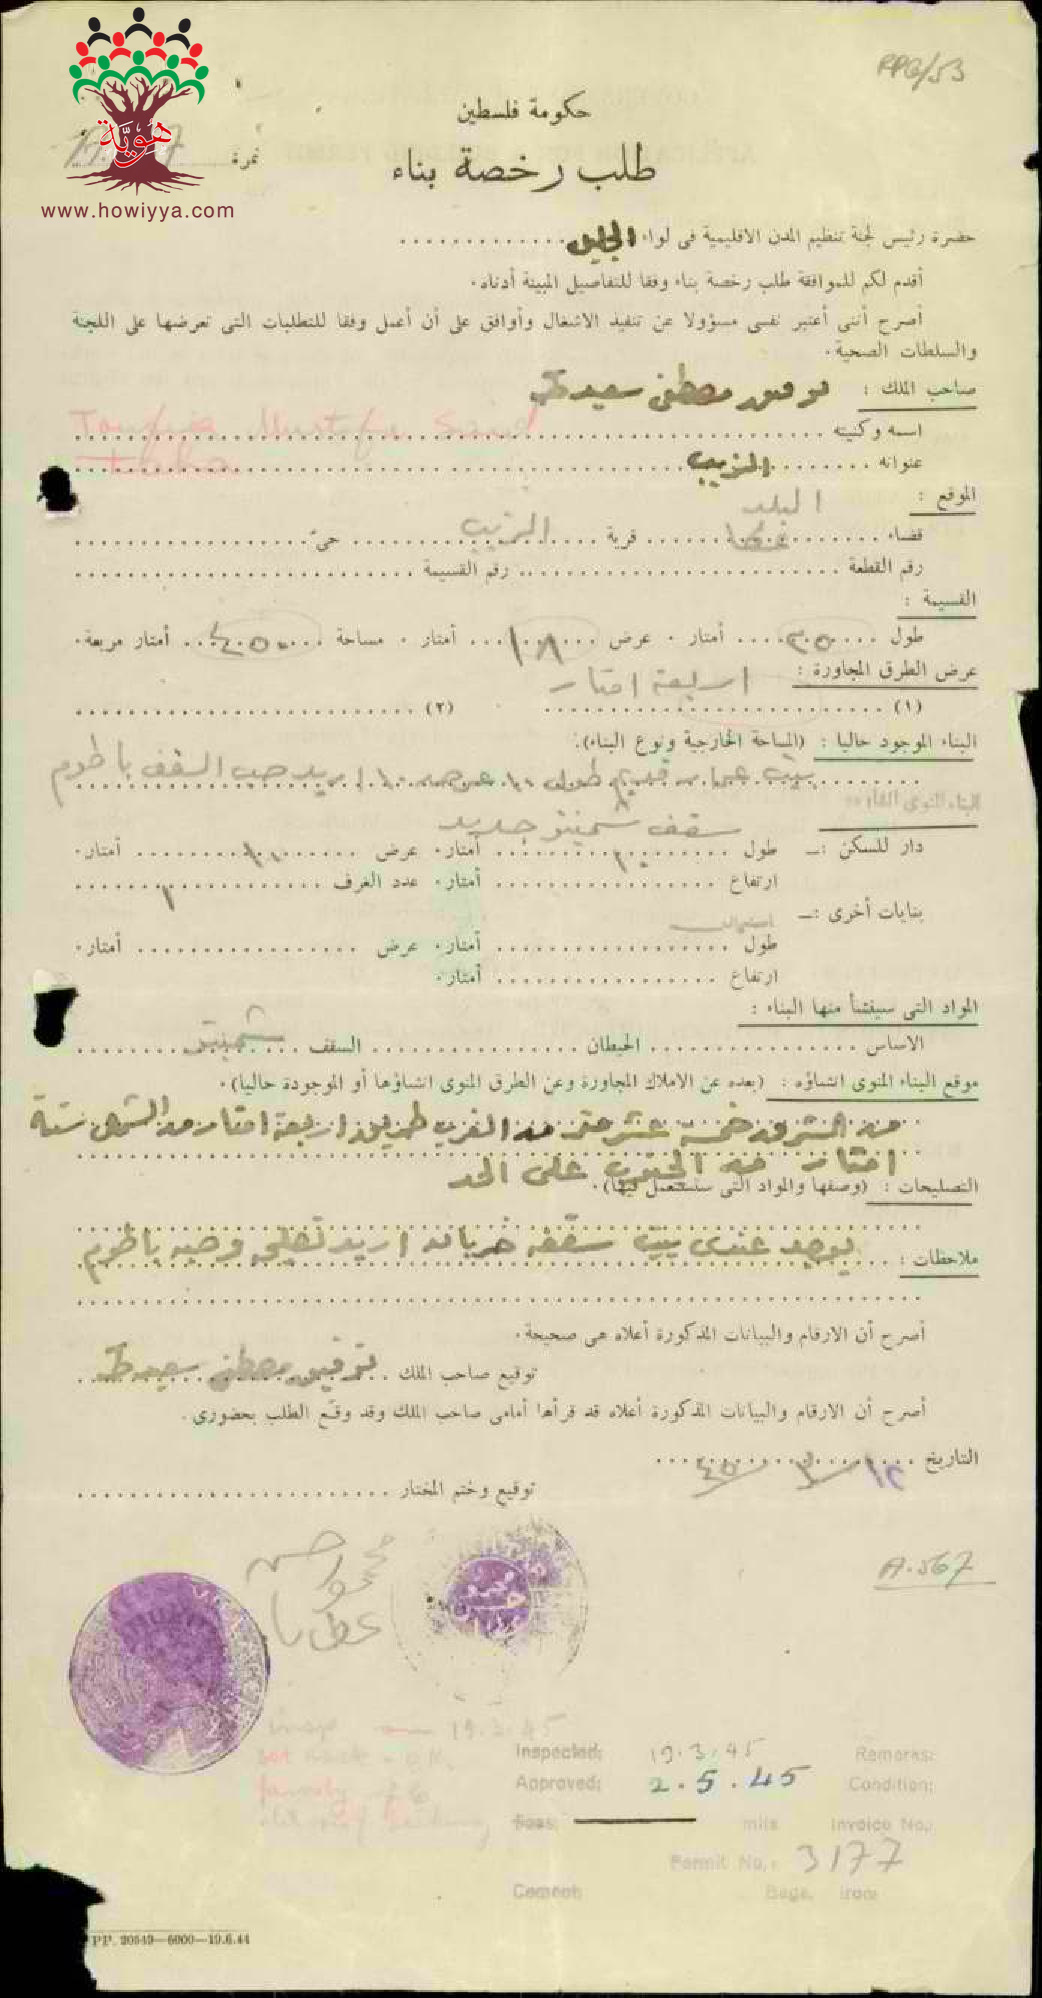 PP6/53
هوية
www.howiyya.com
حكومة فلسطين
نمرة:
طلب رخصة بناء
حضرة رئيس لجنة تنظيم المدن الاقليمية فى لواء الجليل
أقدم لكم للموافقة طلب رخصة بناء وفقا للتفاصيل المبينة أدناه.
أصرح أننى أعتبر نفسى مسؤولا عن تنفيذ الاشغال وأوافق على أن أعمل وفقا للمتطلبات التى تعرضها على اللجنة
والسلطات الصحية.
صاحب الملك : توفيق مصطفى سعيد طه
Toufic Mustafa Said
Taha
اسمه وكنيته
عنوانه الزيب
الموقع : البلد
قضاء عكا قرية الزيب حىّ
رقم القطعة رقم القسيمة
القسيمة :
طول أمتار . عرض أمتار . مساحة أمتار مربعة.
عرض الطرق المجاورة : اربعة امتار
(١) (٢)
البناء الموجود حاليا : (المساحة الخارجية ونوع البناء).
بيت عمار قديم طول ١٠ عرضه ١٠ اريد صب السقف باطوم
سقف شمينتو جديد
دار للسكن :- طول ١٠ أمتار. عرض ١٠ أمتار.
ارتفاع أمتار. عدد الغرف ١
بنايات أخرى :-
طول أمتار. عرض أمتار.
ارتفاع أمتار.
المواد التى سينشأ منها البناء :
الاساس الحيطان السقف شمينتو
موقع البناء المنوى انشاؤه : (بعده عن الاملاك المجاورة وعن الطرق المنوى انشاؤها أو الموجودة حاليا).
من الشرق خمسة عشر متر من الغرب طريق اربعة امتار من الشمال ستة
امتار من الجنوب على الحد
التصليحات : (وصفها والمواد التى ستستعمل فيها).
يوجد عندي بيت سقفه خربان اريد تصليحه وصبه باطوم
ملاحظات :
أصرح أن الارقام والبيانات المذكورة أعلاه هى صحيحة.
توقيع صاحب الملك توفيق مصطفى سعيد طه
أصرح أن الارقام والبيانات المذكورة أعلاه قد قرأها أمامى صاحب الملك وقد وقّع الطلب بحضورى.
التاريخ ١٢/٣/٤٥
توقيع وختم المختار
A.567
محمود
عطايا
insp 19.3.45
Inspected: 19.3.45 Remarks:
Approved: 2.5.45 Condition:
Fees: mils Invoice No.:
Permit No.: 3177
Cement: Bags. Iron:
PP. 20549—6000—19.6.44